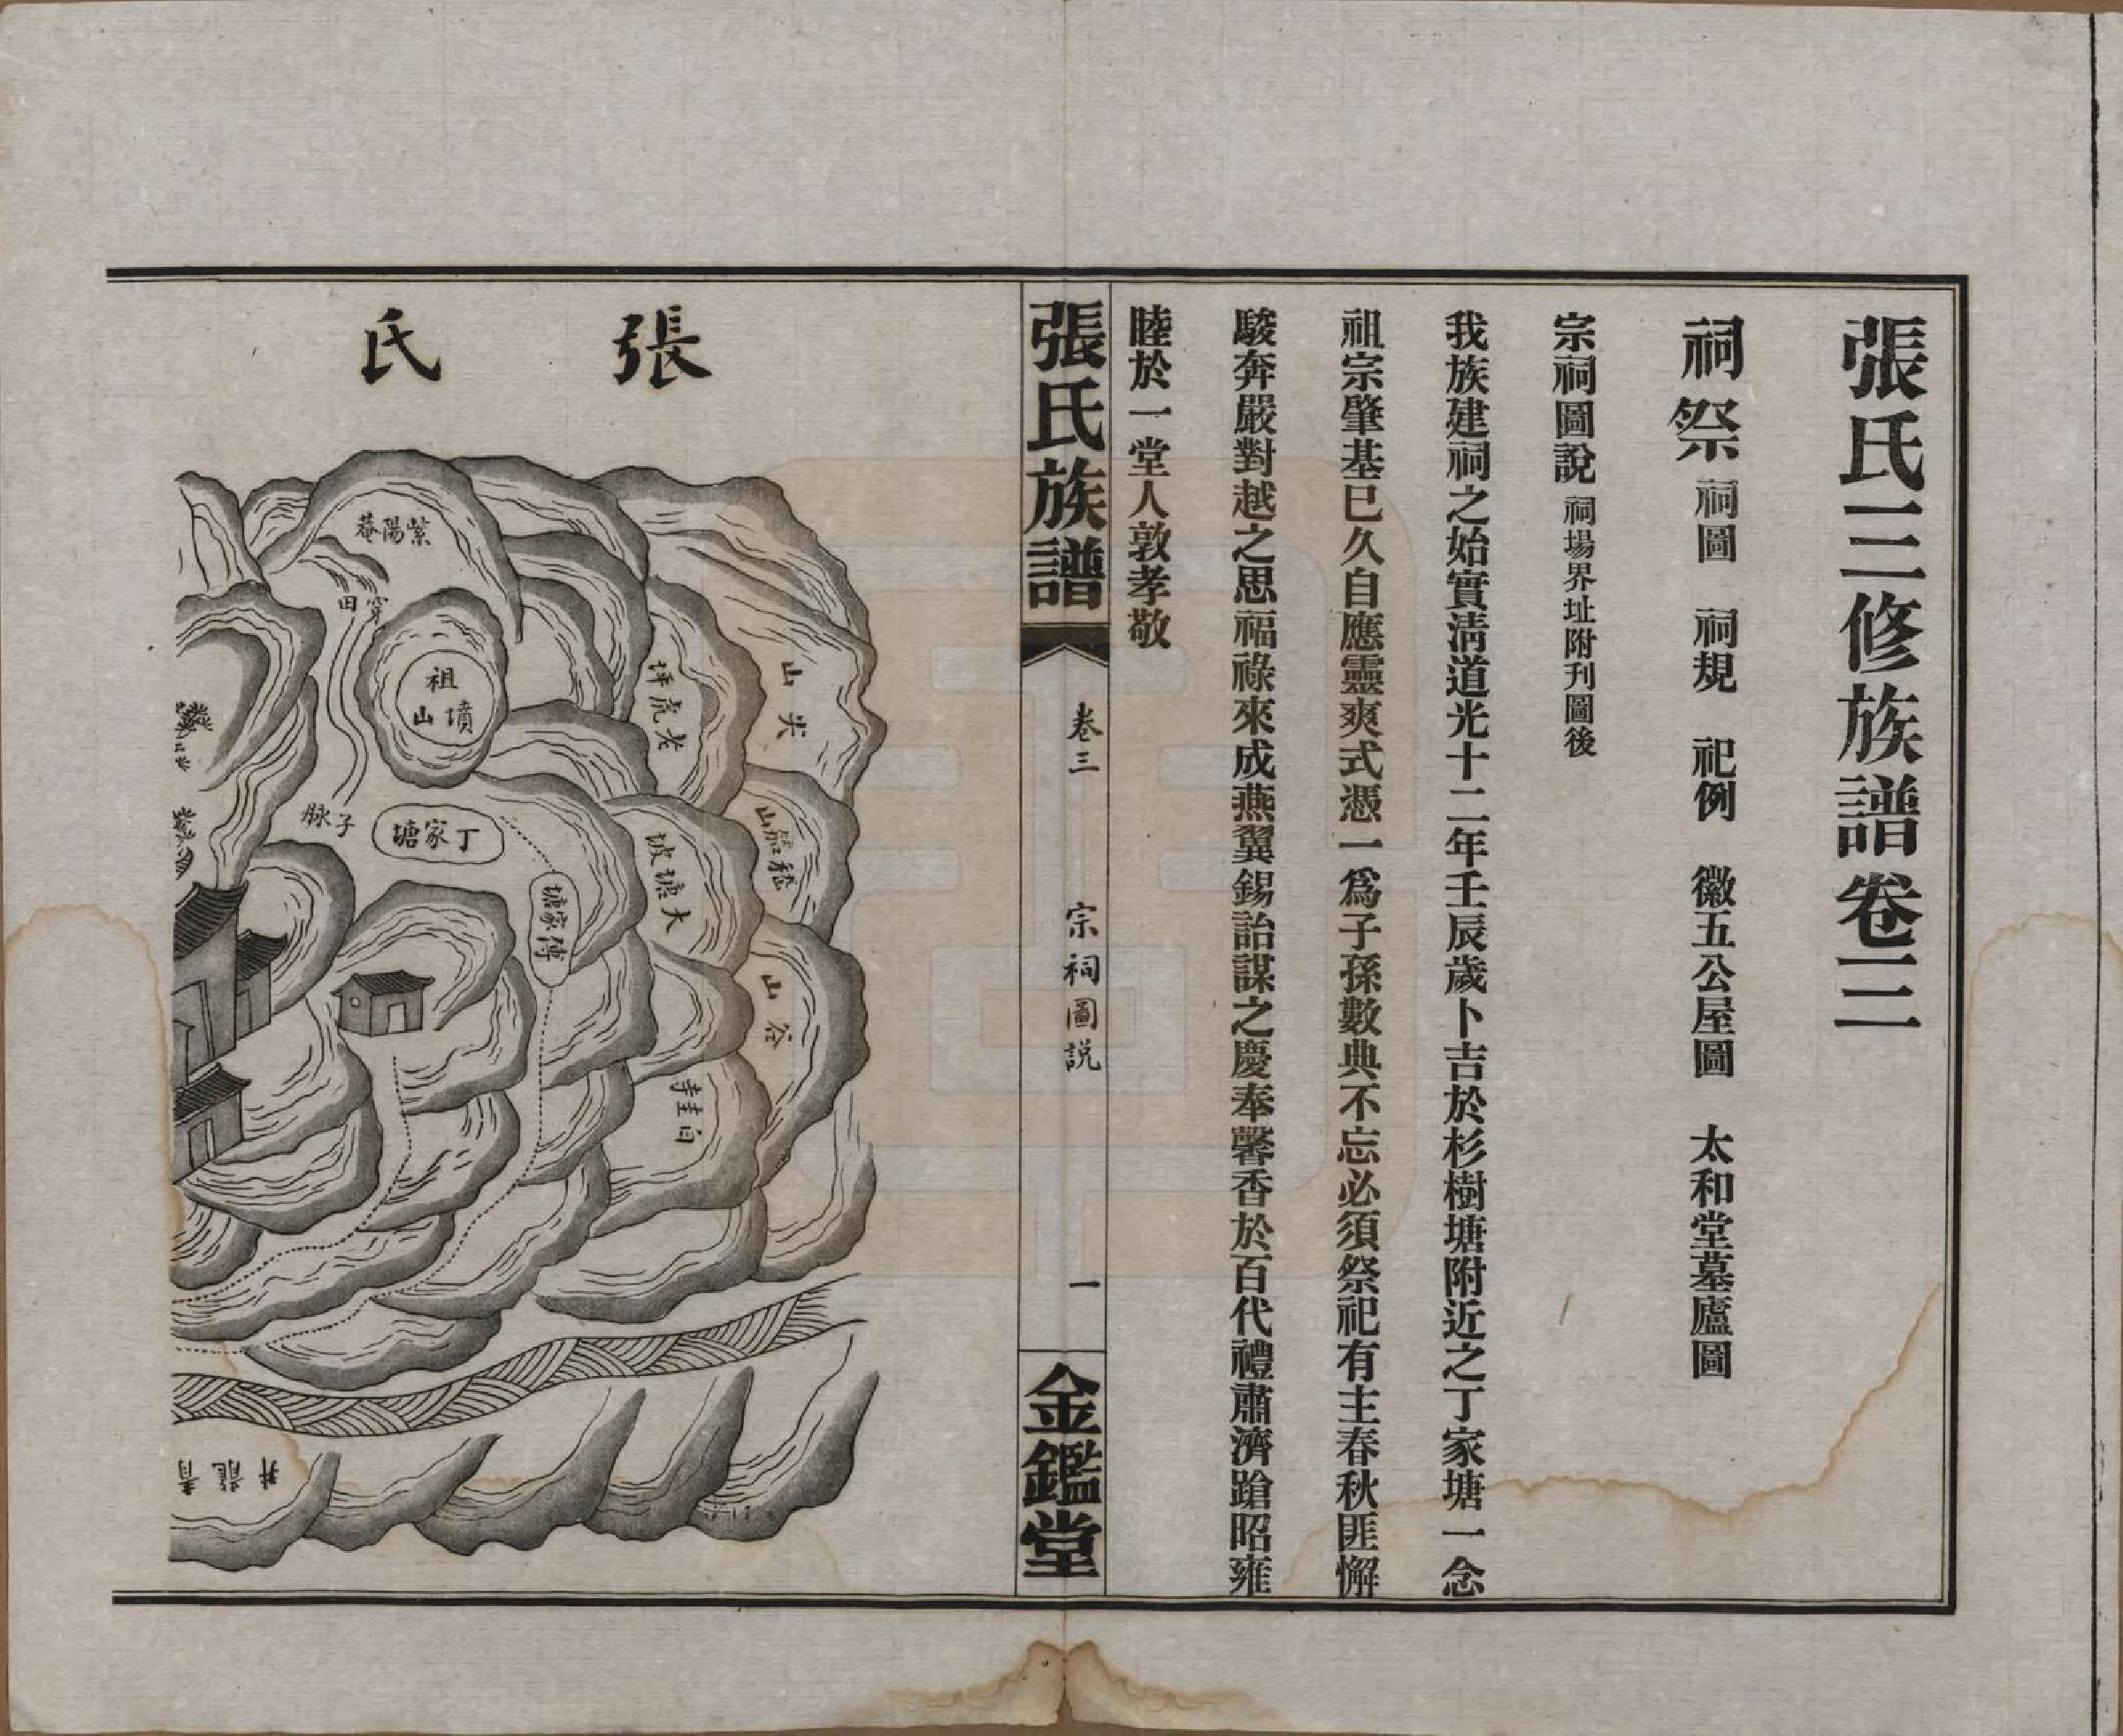 張氏三修族譜卷三
祠祭 祠圖 祠規 祀例 徽五公屋圖 太和堂墓廬圖
宗祠圖說 祠場界址附刊圖後
我族建祠之始實清道光十二年壬辰歲卜吉於杉樹塘附近之丁家塘一念
祖宗肇基已久自應靈爽式憑一為子孫數典不忘必須祭祀有主春秋匪懈
駿奔嚴對越之思福祿來成燕翼錫詒謀之慶奉馨香於百代禮肅濟蹌昭雍
睦於一堂人敦孝敬
張氏族譜
卷三
宗祠圖說
一
金鑑堂
張氏
紫陽菴
穿田
祖墳山
子脉
丁家塘
傅家塘
老虎坪
尖山
大塘坡
嵇船山
谷山
白圭寺
青龍井